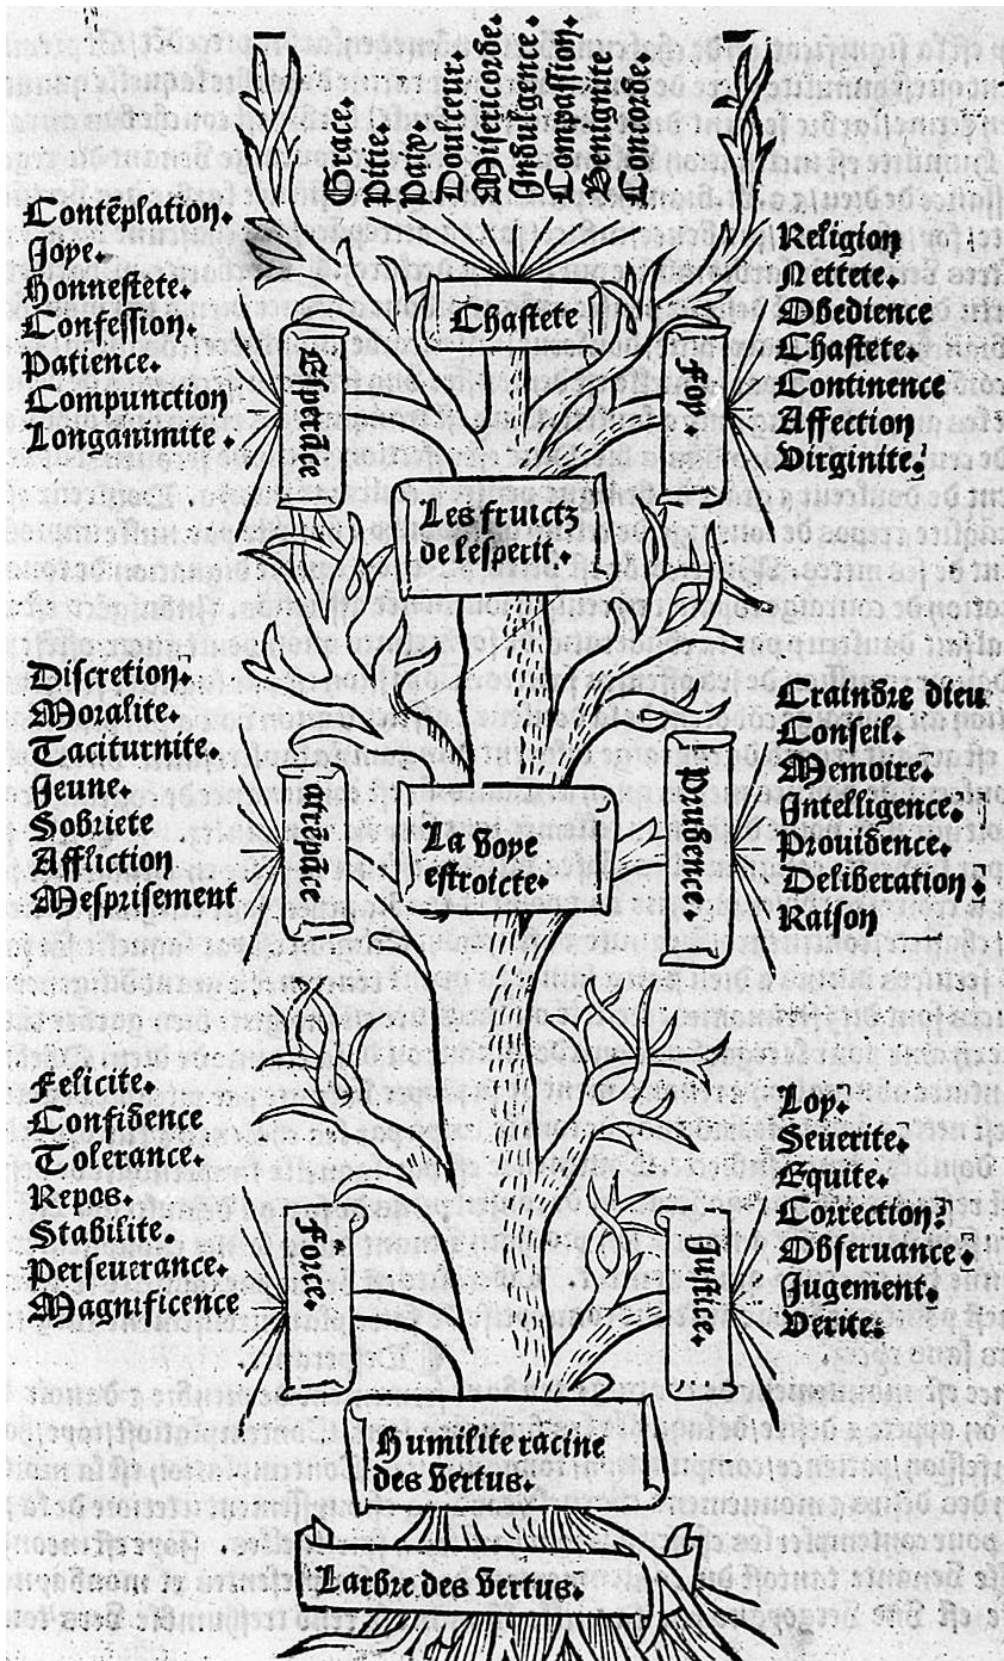 Grace.
Pitie.
Paix.
Doulceur.
Misericorde.
Indulgence.
Compassion.
Benignite
Concorde.
Chastete
Contēplation.
Joye.
Honnestete.
Confession.
Patience.
Compunction
Longanimite.
Esperāce
Foy.
Religion
Nettete.
Obedience
Chastete.
Continence
Affection
Virginite.
Les fruictz
de lesperit.
Discretion.
Moralite.
Taciturnite.
Jeune.
Sobriete
Affliction
Mesprisement
atrēpāce
La voye
estroicte.
Prudence.
Craindre dieu
Conseil.
Memoire.
Intelligence.
Prouidence.
Deliberation.
Raison
Felicite.
Confidence
Tolerance.
Repos.
Stabilite.
Perseuerance.
Magnificence
Force.
Justice.
Loy.
Seuerite.
Equite.
Correction.
Obseruance.
Jugement.
Verite.
Humilite racine
des vertus.
Larbre des vertus.